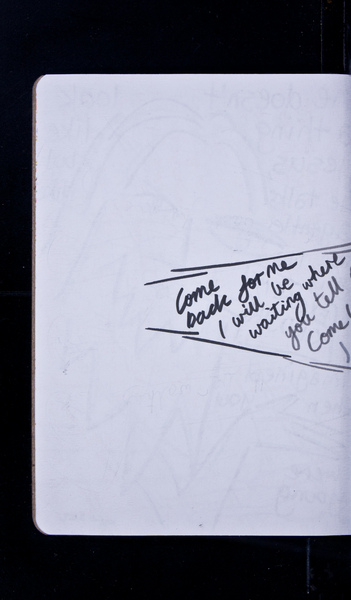 Come
back for me
I will be
waiting where
you tell
Come